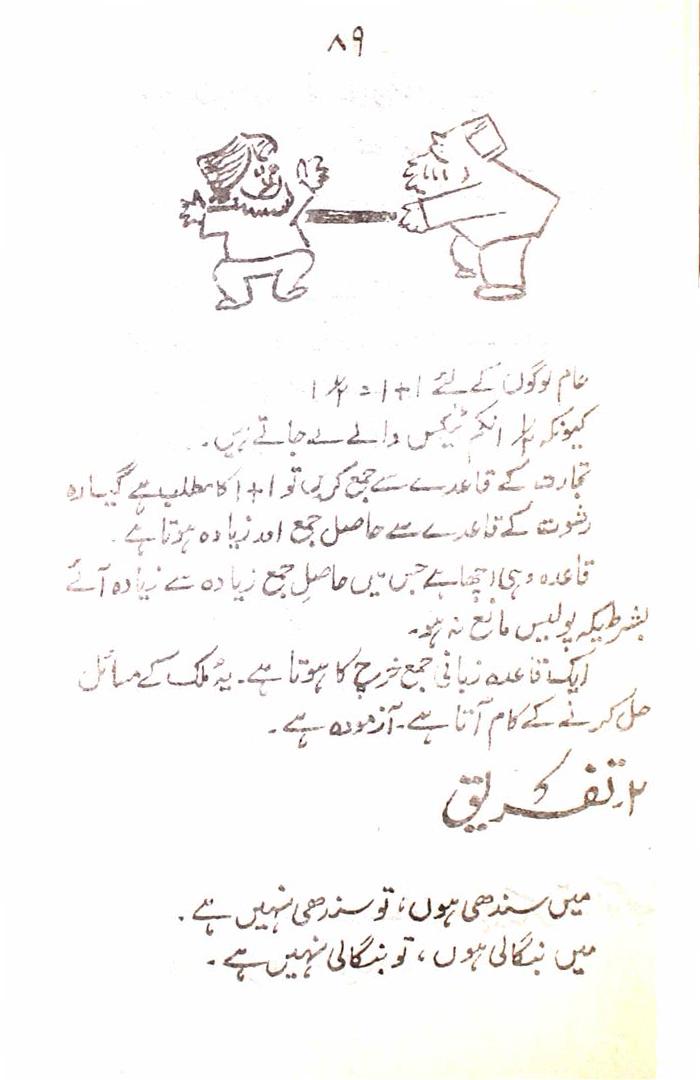 ۸۹
عام لوگوں کے لئے ۱+۱ = ۱ ۱/۲
کیونکہ ۱/۲ انکم ٹیکس والے لے جاتے ہیں۔
تجارت کے قاعدے سے جمع کریں تو ۱+۱ کا مطلب ہے گیارہ
رشوت کے قاعدے سے حاصل جمع اور زیادہ ہوتا ہے۔
قاعدہ وہی اچھا ہے جس میں حاصلِ جمع زیادہ سے زیادہ آئے
بشرطیکہ پولیس مانع نہ ہو۔
ایک قاعدہ زبانی جمع خرچ کا ہوتا ہے۔ یہ ملک کے مسائل
حل کرنے کے کام آتا ہے۔ آزمودہ ہے۔
۲۔ تفریق
میں سندھی ہوں، تو سندھی نہیں ہے۔
میں بنگالی ہوں، تو بنگالی نہیں ہے۔